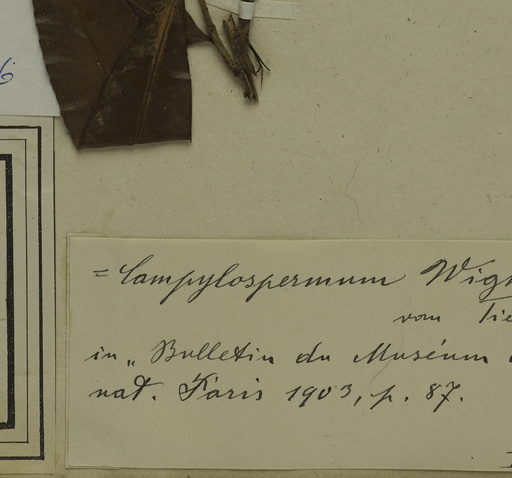 = Campylospermum Wigh
van Tie
in „ Bulletin du Muséum
nat. Paris 1903, p. 87.
6